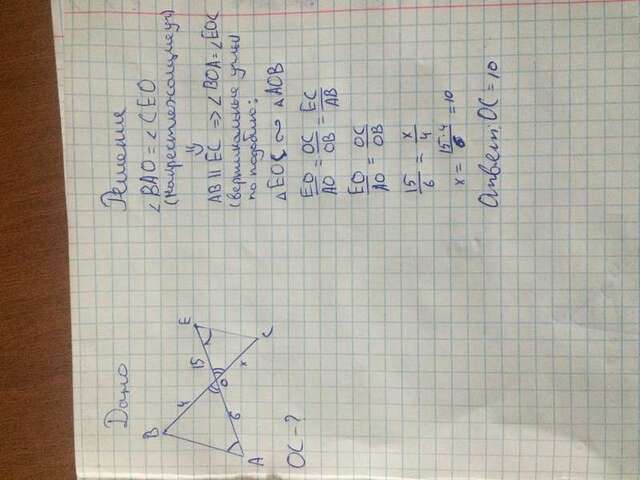 Дано
B
4
15
E
O
6
x
A
C
OC - ?
Решение
∠BAO = ∠CEO
(накрестлежащие уг)
⇓
AB || EC ⇒ ∠BOA = ∠EOC
(вертикальные углы
по подобию:
△EOC ∾ △AOB
EO/AO = OC/OB = EC/AB
EO/AO = OC/OB
15/6 = x/4
x = 15·4/6 = 10
Ответ: OC = 10